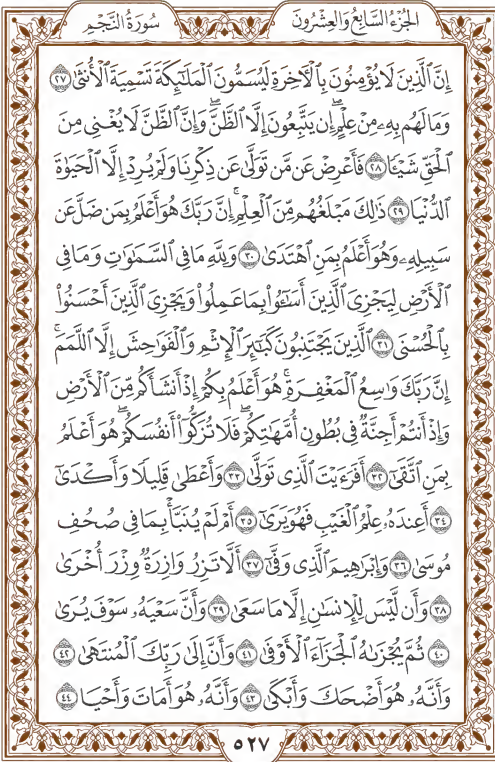 الجُزْءُ السَّابِعُ وَالعِشْرُونَ
سُورَةُ النَّجْمِ
إِنَّ ٱلَّذِينَ لَا يُؤْمِنُونَ بِٱلْءَاخِرَةِ لَيُسَمُّونَ ٱلْمَلَـٰٓئِكَةَ تَسْمِيَةَ ٱلْأُنثَىٰ ٢٧
وَمَا لَهُم بِهِۦ مِنْ عِلْمٍ ۖ إِن يَتَّبِعُونَ إِلَّا ٱلظَّنَّ ۖ وَإِنَّ ٱلظَّنَّ لَا يُغْنِى مِنَ
ٱلْحَقِّ شَيْـًٔا ٢٨ فَأَعْرِضْ عَن مَّن تَوَلَّىٰ عَن ذِكْرِنَا وَلَمْ يُرِدْ إِلَّا ٱلْحَيَوٰةَ
ٱلدُّنْيَا ٢٩ ذَٰلِكَ مَبْلَغُهُم مِّنَ ٱلْعِلْمِ ۚ إِنَّ رَبَّكَ هُوَ أَعْلَمُ بِمَن ضَلَّ عَن
سَبِيلِهِۦ وَهُوَ أَعْلَمُ بِمَنِ ٱهْتَدَىٰ ٣٠ وَلِلَّهِ مَا فِى ٱلسَّمَـٰوَٰتِ وَمَا فِى
ٱلْأَرْضِ لِيَجْزِىَ ٱلَّذِينَ أَسَـٰٓـُٔوا۟ بِمَا عَمِلُوا۟ وَيَجْزِىَ ٱلَّذِينَ أَحْسَنُوا۟
بِٱلْحُسْنَى ٣١ ٱلَّذِينَ يَجْتَنِبُونَ كَبَـٰٓئِرَ ٱلْإِثْمِ وَٱلْفَوَٰحِشَ إِلَّا ٱللَّمَمَ ۚ
إِنَّ رَبَّكَ وَٰسِعُ ٱلْمَغْفِرَةِ ۚ هُوَ أَعْلَمُ بِكُمْ إِذْ أَنشَأَكُم مِّنَ ٱلْأَرْضِ
وَإِذْ أَنتُمْ أَجِنَّةٌ فِى بُطُونِ أُمَّهَـٰتِكُمْ ۖ فَلَا تُزَكُّوٓا۟ أَنفُسَكُمْ ۖ هُوَ أَعْلَمُ
بِمَنِ ٱتَّقَىٰٓ ٣٢ أَفَرَءَيْتَ ٱلَّذِى تَوَلَّىٰ ٣٣ وَأَعْطَىٰ قَلِيلًا وَأَكْدَىٰٓ
٣٤ أَعِندَهُۥ عِلْمُ ٱلْغَيْبِ فَهُوَ يَرَىٰٓ ٣٥ أَمْ لَمْ يُنَبَّأْ بِمَا فِى صُحُفِ
مُوسَىٰ ٣٦ وَإِبْرَٰهِيمَ ٱلَّذِى وَفَّىٰٓ ٣٧ أَلَّا تَزِرُ وَازِرَةٌ وِزْرَ أُخْرَىٰ
٣٨ وَأَن لَّيْسَ لِلْإِنسَـٰنِ إِلَّا مَا سَعَىٰ ٣٩ وَأَنَّ سَعْيَهُۥ سَوْفَ يُرَىٰ
٤٠ ثُمَّ يُجْزَىٰهُ ٱلْجَزَآءَ ٱلْأَوْفَىٰ ٤١ وَأَنَّ إِلَىٰ رَبِّكَ ٱلْمُنتَهَىٰ ٤٢
وَأَنَّهُۥ هُوَ أَضْحَكَ وَأَبْكَىٰ ٤٣ وَأَنَّهُۥ هُوَ أَمَاتَ وَأَحْيَا ٤٤
٥٢٧